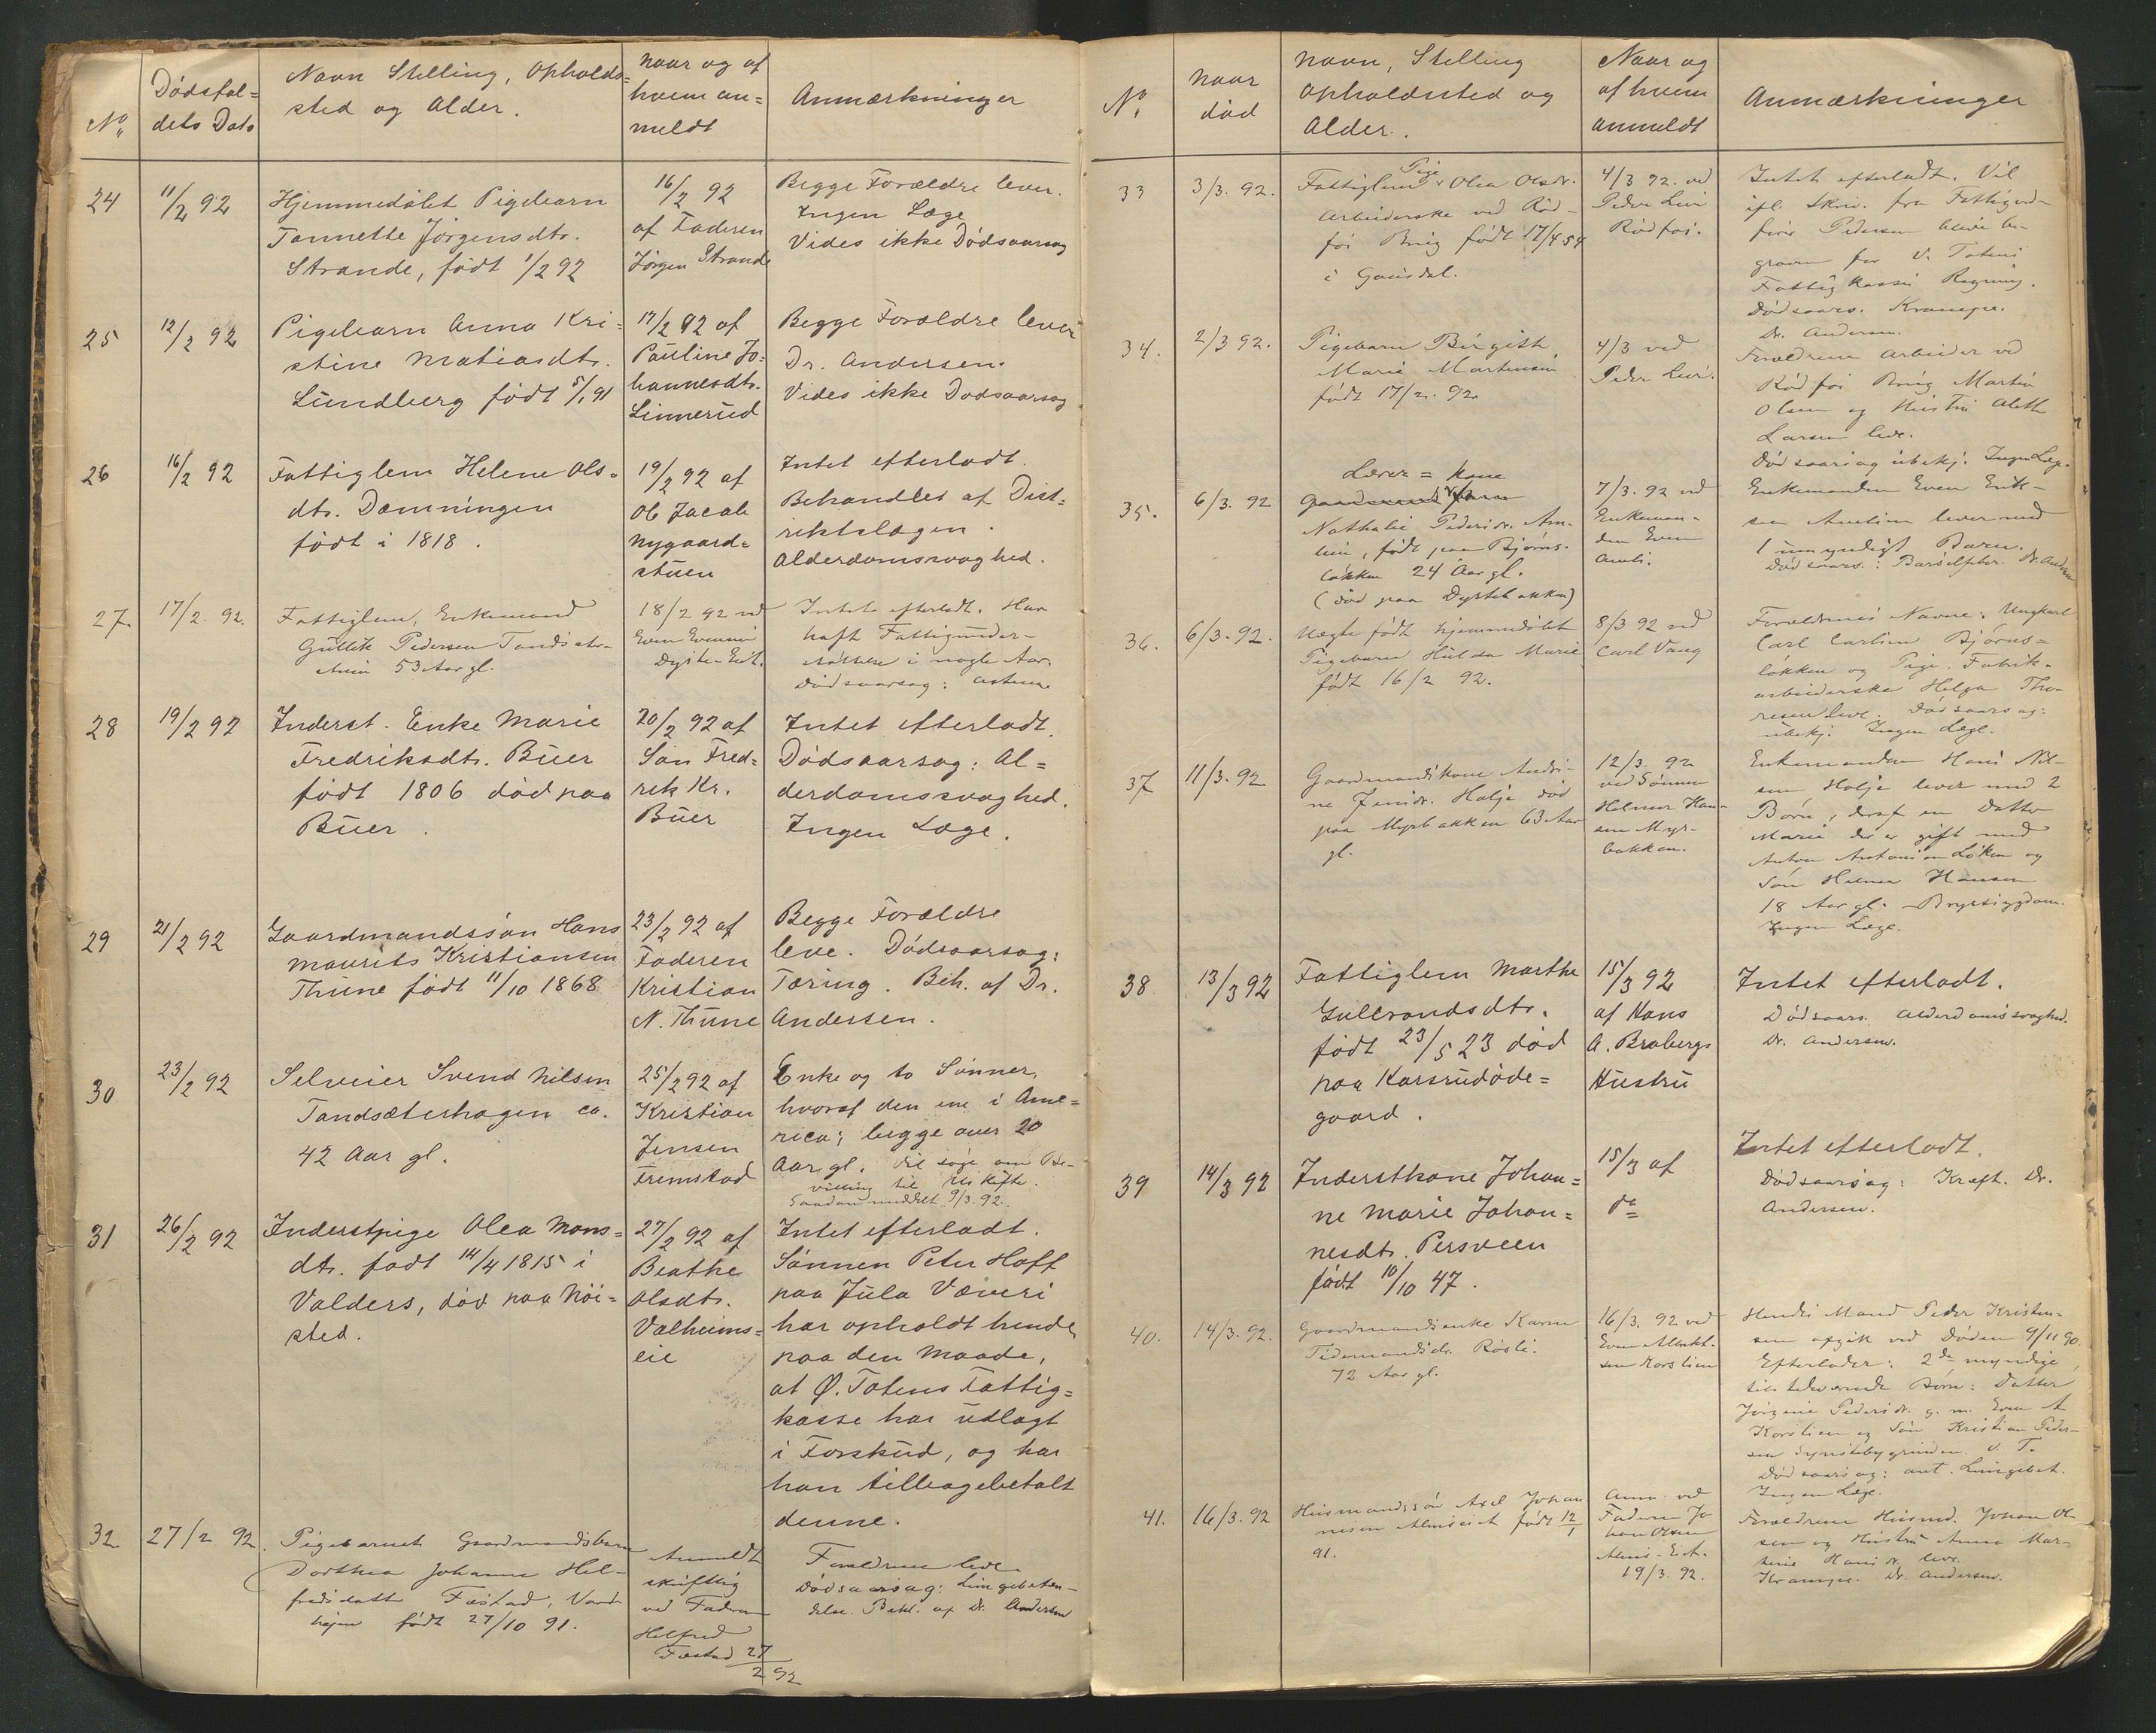 No.
Dødsfal=
dets Dato
Navn Stilling, Opholds=
sted og Alder.
Naar og af
hvem an=
meldt
Anmærkninger
24
11/2 92
Hjemmedøbt Pigebarn
Tannette Jørgensdtr.
Strande, født 1/2 92
16/2 92
af Faderen
Jørgen Strande
Begge Forældre lever.
Ingen Læge
Vides ikke Dødsaarsag
25
12/2 92
Pigebarn Anna Kri=
stine Matiasdtr.
Lundberg født 5/1 91
17/2 92 af
Pauline Jo=
hannesdtr.
Linnerud
Begge Forældre lever
Dr. Andersen.
Vides ikke Dødsaarsag
26
16/2 92
Fattiglem Helene Ols=
dtr. Dæmningen
født i 1818.
19/2 92 af
Ole Jacob
Nygaard=
stuen
Intet efterladt.
Behandlet af Dist=
riktslægen.
Alderdomssvaghed.
27
17/2. 92.
Fattiglem, Enkemand
Gullik Pedersen Tandsæter-
53 Aar gl.
18/2 92 ved
Even Evensen
Dyste-Eiet.
Intet efterladt. Har
haft Fattigunder-
støttelse i nogle Aar.
Dødsaarsag: Astma
28
19/2 92
Inderst. Enke Marie
Fredriksdtr. Buer
født 1806 død paa
Buer.
20/2 92 af
Søn Fred=
rik Kr.
Buer
Intet efterladt.
Dødsaarsag: Al=
derdomssvaghed.
Ingen Læge.
29
21/2 92
Gaardmandssøn Hans
Maurits Kristiansen
Thune født 11/10 1868
23/2 92 af
Faderen
Kristian
N. Thune
Begge Forældre
leve. Dødsaarsag:
Tæring. Beh. af Dr.
Andersen.
30
23/2 92
Selveier Svend Nilsen
Tandsæterhagen ca.
42 Aar gl.
25/2 92 af
Kristian
Jensen
Fremstad
Enke og to Sønner,
hvoraf den ene i Ame=
rica; begge over 20
Aar gl. Vil søge om Be-
villing til Uskifte.
Saadan meddelt 9/3. 92.
31
26/2 92
Inderstpige Olea Mons=
dtr. født 14/4 1815 i
Valders, død paa Nøi=
sted.
27/2 92 af
Beathe
Olsdtr.
Valheims=
eie
Intet efterladt.
Sønnen Peter Hoff
paa Jula Væveri
har opholdt hende
paa den Maade,
at Ø. Totens Fattig=
kasse har udlagt
i Forskud, og har
han tilbagebetalt
denne.
32
27/2 92.
Pigebarnet Gaardmandsbarn
Dorthea Johanne Hel-
fredsdatter Festad,
født 27/10 91.
Anmeldt
skriftlig
ved Faderen
Helfred
Festad 27/2 92
Forældrene leve.
Dødsaarsag: Lungebetæn-
delse. Behl. af Dr. Andersen
No.
Naar
død
Navn, Stilling
Opholdssted og
Alder.
Naar og
af hvem
anmeldt
Anmærkninger
33
3/3. 92.
Pige
Fattiglem Olea Olsdr.
Arbeiderske ved Rød-
fos Brug født 17/4 54
i Gausdal.
4/3 92. ved
Peder Lier
Rødfos.
Intet efterladt. Vil
ifl. Skriv. fra Fattigød-
Pedersen blive be-
graven for V. Totens
Fattigkasses Regning.
Dødsaars. Krampe.
Dr. Andersen.
34.
2/3 92.
Pigebarn Birgith
Marie Martinsen
født 17/2. 92.
4/3 ved
Peder Lier.
Forældrene Arbeider ved
Rødfos Brug Martin
Olsen og Hustru Alethe
Larsen leve.
Dødsaarsag ubekj. Ingen Læge.
35.
6/3. 92
Lærer = kone
Nathalie Pedersdr. Am-
lien, født paa Bjørns-
løkken 24 Aar gl.
(død paa Dystebakken)
7/3. 92 ved
Enkeman-
den Even
Amli.
Enkemanden Even Erik-
sen Amlien lever med
1 umyndigt Barn.
Dødsaars.: Barselfeber. Dr. Andersen
36.
6/3. 92.
Uægte født hjemmedøbt
Pigebarn Hulda Marie
født 16/2 92.
8/3 92 ved
Carl Vang
Forældrenes Navne: Ungkarl
Carl Carlsen Bjørns=
løkken og Pige. Fabrik-
arbeiderske Helga Tho-
resen leve. Dødsaarsag:
ubekj. Ingen Læge.
37
11/3. 92
Gaardmandskone Andri-
ne Jensdr. Holje død
paa Myrbakken 63 Aar
gl.
12/3. 92
ved Sønnen
Helmer Han-
sen Myr-
bakken.
Enkemanden Hans Nil-
sen Holje lever med 2
Børn, deraf en Datter
Marie der er gift med
Anton Antonsen Løken og
Søn Helmer Hansen
18 Aar gl. – Brystsygdom.
Ingen Læge.
38
13/3 92
Fattiglem Marthe
Gulbrandsdtr.
født 23/5 23 død
paa Karsrudøde=
gaard.
15/3 92
af Hans
A. Brabergs
Hustru
Intet efterladt.
Dødsaars. Alderdomssvaghed.
Dr. Andersen.
39
14/3 92
Inderstkone Johan=
ne Marie Johan=
nesdtr. Persveen
født 10/10 47.
15/3 af
do
Intet efterladt.
Dødsaarsag: Kræft. Dr.
Andersen.
40.
14/3. 92.
Gaardmandsenke Karen
Tidemandsdr. Røsli.
72 Aar gl.
16/3. 92 ved
Even
sen Korslien
Hendes Mand Peder Kristen-
sen afgik ved Døden 9/11 90.
Efterlader: 2de myndige,
tilstedeværende Børn: Datter
Jørgine Pedersdr. g. m. Even A.
Korslien og Søn Kristian Peder-
sen V. T.
Dødsaarsag: ant. Lungebet.
Ingen Læge.
41.
16/3. 92
Husmandssøn Axel Johan
nesen født 12/1
91.
Anm. ved
Faderen Jo
han Olsen
Alms-Eiet.
19/3. 92.
Forældrene Husmd. Johan Ol-
sen og Hustru Anna Mar-
Hansdr. leve.
Krampe. Dr. Andersen.